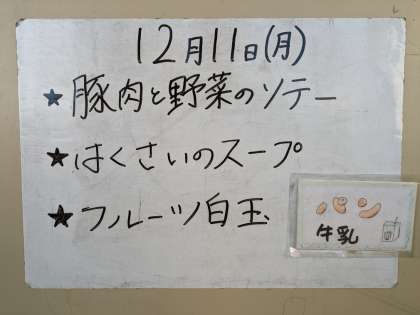 12月11日(月)
★豚肉と野菜のソテー
★はくさいのスープ
★フルーツ白玉
パン
牛乳